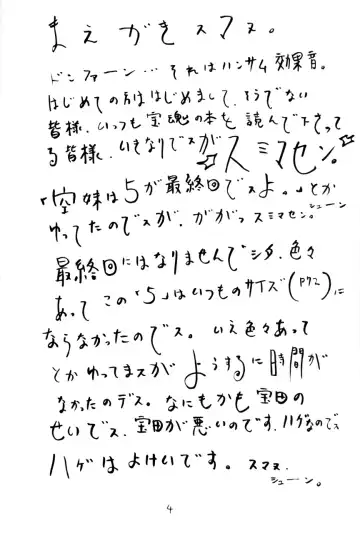 まえがきスマヌ。
ドンファーン…それはハンサム効果音。
はじめての方ははじめまして、そうでない
皆様、いつも宝魂の本を読んで下さって
る皆様、いきなりでスが
☆スミマセン。☆
「空妹は5が最終回でスよ。」とか
ゆってたのでスが、ががっスミマセン。シューン
最終回にはなりませんで”シタ、色々
あってこの「5」はいつものサイズ(P72)に
ならなかったのでス。いえ色々あって
とかゆってまスがようするに時間が
なかったのデス。なにもかも宝田の
せいでス、宝田が悪いのです、ハゲなのでス
ハゲはよけいです。スマヌ。
シューン。
4